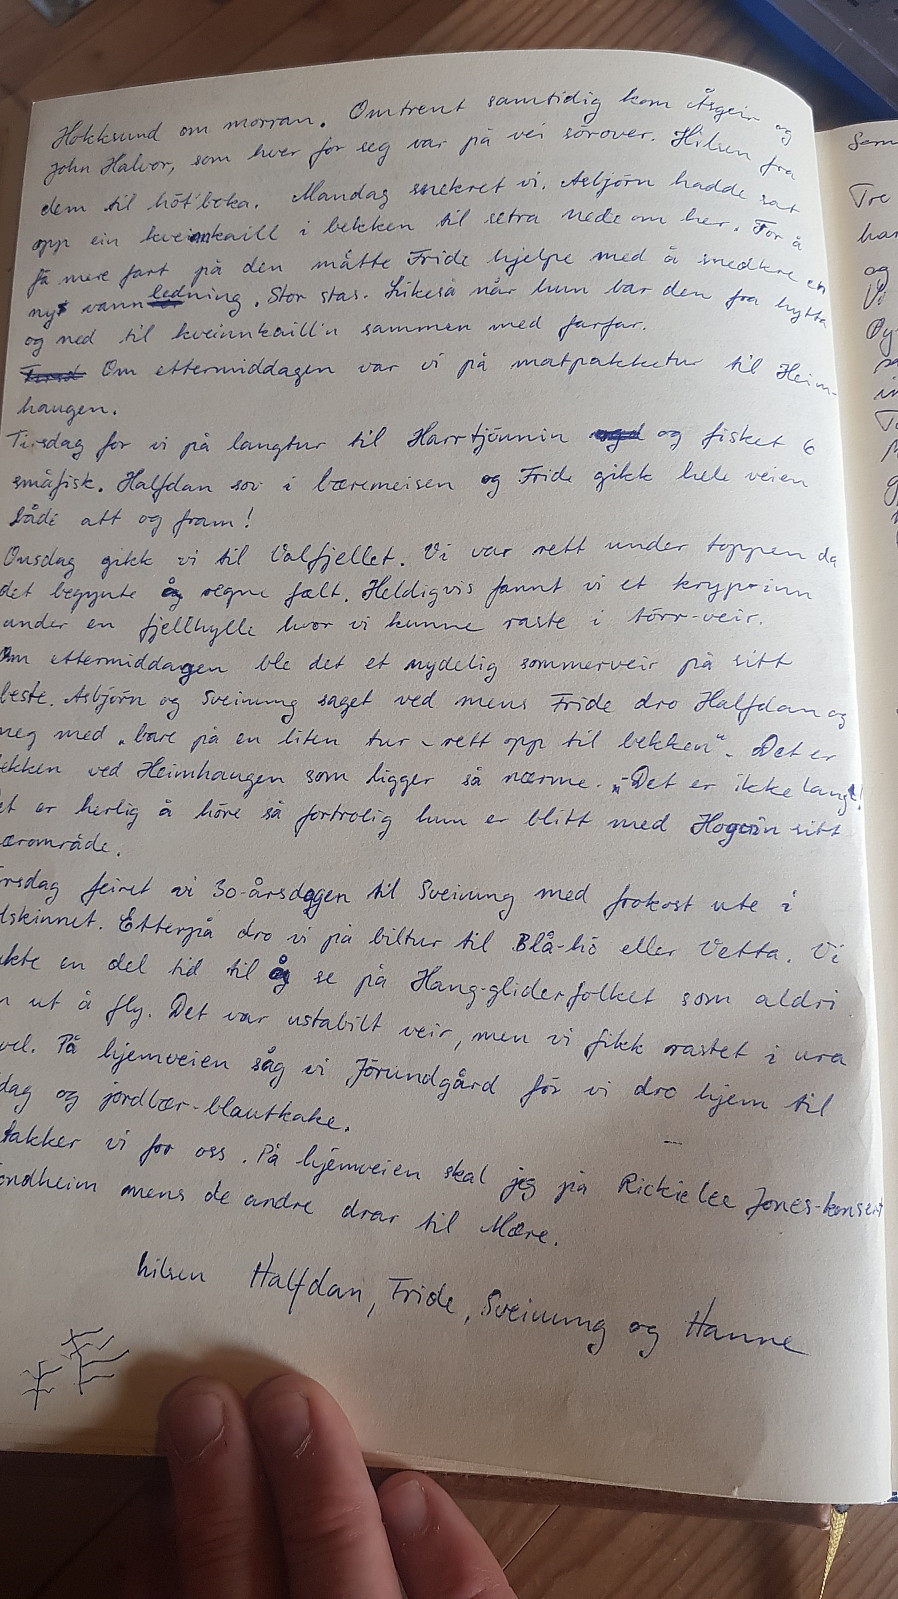 Hokksund om morran. Omtrent samtidig kom Åsgeir og
John Halvor, som hver for seg var på vei sørover. Hilsen fra
dem til höt'boka. Mandag snekret vi. Asbjörn hadde satt
opp ein kveinnkaill i bekken til setra nedenom her. For å
få mere fart på den måtte Fride hjelpe med å snedkre en
ny vannledning. Stor stas. Likeså når hun bar den fra hytta
og ned til kveinnkaill'n sammen med farfar.
Om ettermiddagen var vi på matpakketur til Heim-
haugen.
Tirsdag for vi på langtur til Harrtjönnin og fisket 6
småfisk. Halfdan sov i bæremeisen og Fride gikk hele veien
både att og fram!
Onsdag gikk vi til Valfjellet. Vi var rett under toppen da
det begynte å regne fælt. Heldigvis fannt vi et kryp-inn
under en fjellhylle hvor vi kunne raste i törr-veir.
Om ettermiddagen ble det et nydelig sommerveir på sitt
beste. Asbjörn og Sveinung saget ved mens Fride dro Halfdan og
meg med „bare på en liten tur – rett opp til bekken". Det er
bekken ved Heimhaugen som ligger så nærme. „Det er ikke langt!
et er herlig å höre så fortrolig hun er blitt med sitt
nærområde.
rsdag feiret vi 30-årsdagen til Sveinung med frokost ute i
lskinnet. Etterpå dro vi på biltur til Blå-hö eller Vetta. Vi
ukte en del tid til å se på Hang-gliderfolket som aldri
n ut å fly. Det var ustabilt veir, men vi fikk rastet i ura
vel. På hjemveien såg vi Jörundgård för vi dro hjem til
dag og jordbær-blautkake.
takker vi for oss. På hjemveien skal jeg på Rickie Lee Jones-konsert
ondheim mens de andre drar til Mære.
hilsen Halfdan, Fride, Sveinung og Hanne
Som
Tre
har
og
Vi